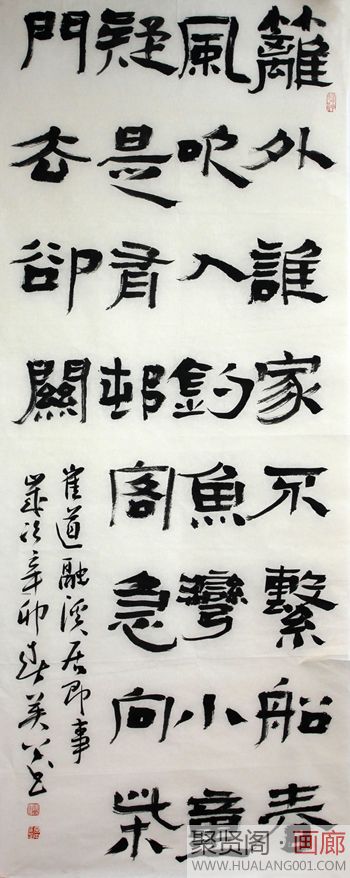 籬外誰家不繫船春
風吹入釣魚灣小童
疑是有邨客急向柴
門去卻關
崔道融溪居即事
歲次辛卯春
聚贤阁·画廊
WWW.HUALANG001.COM